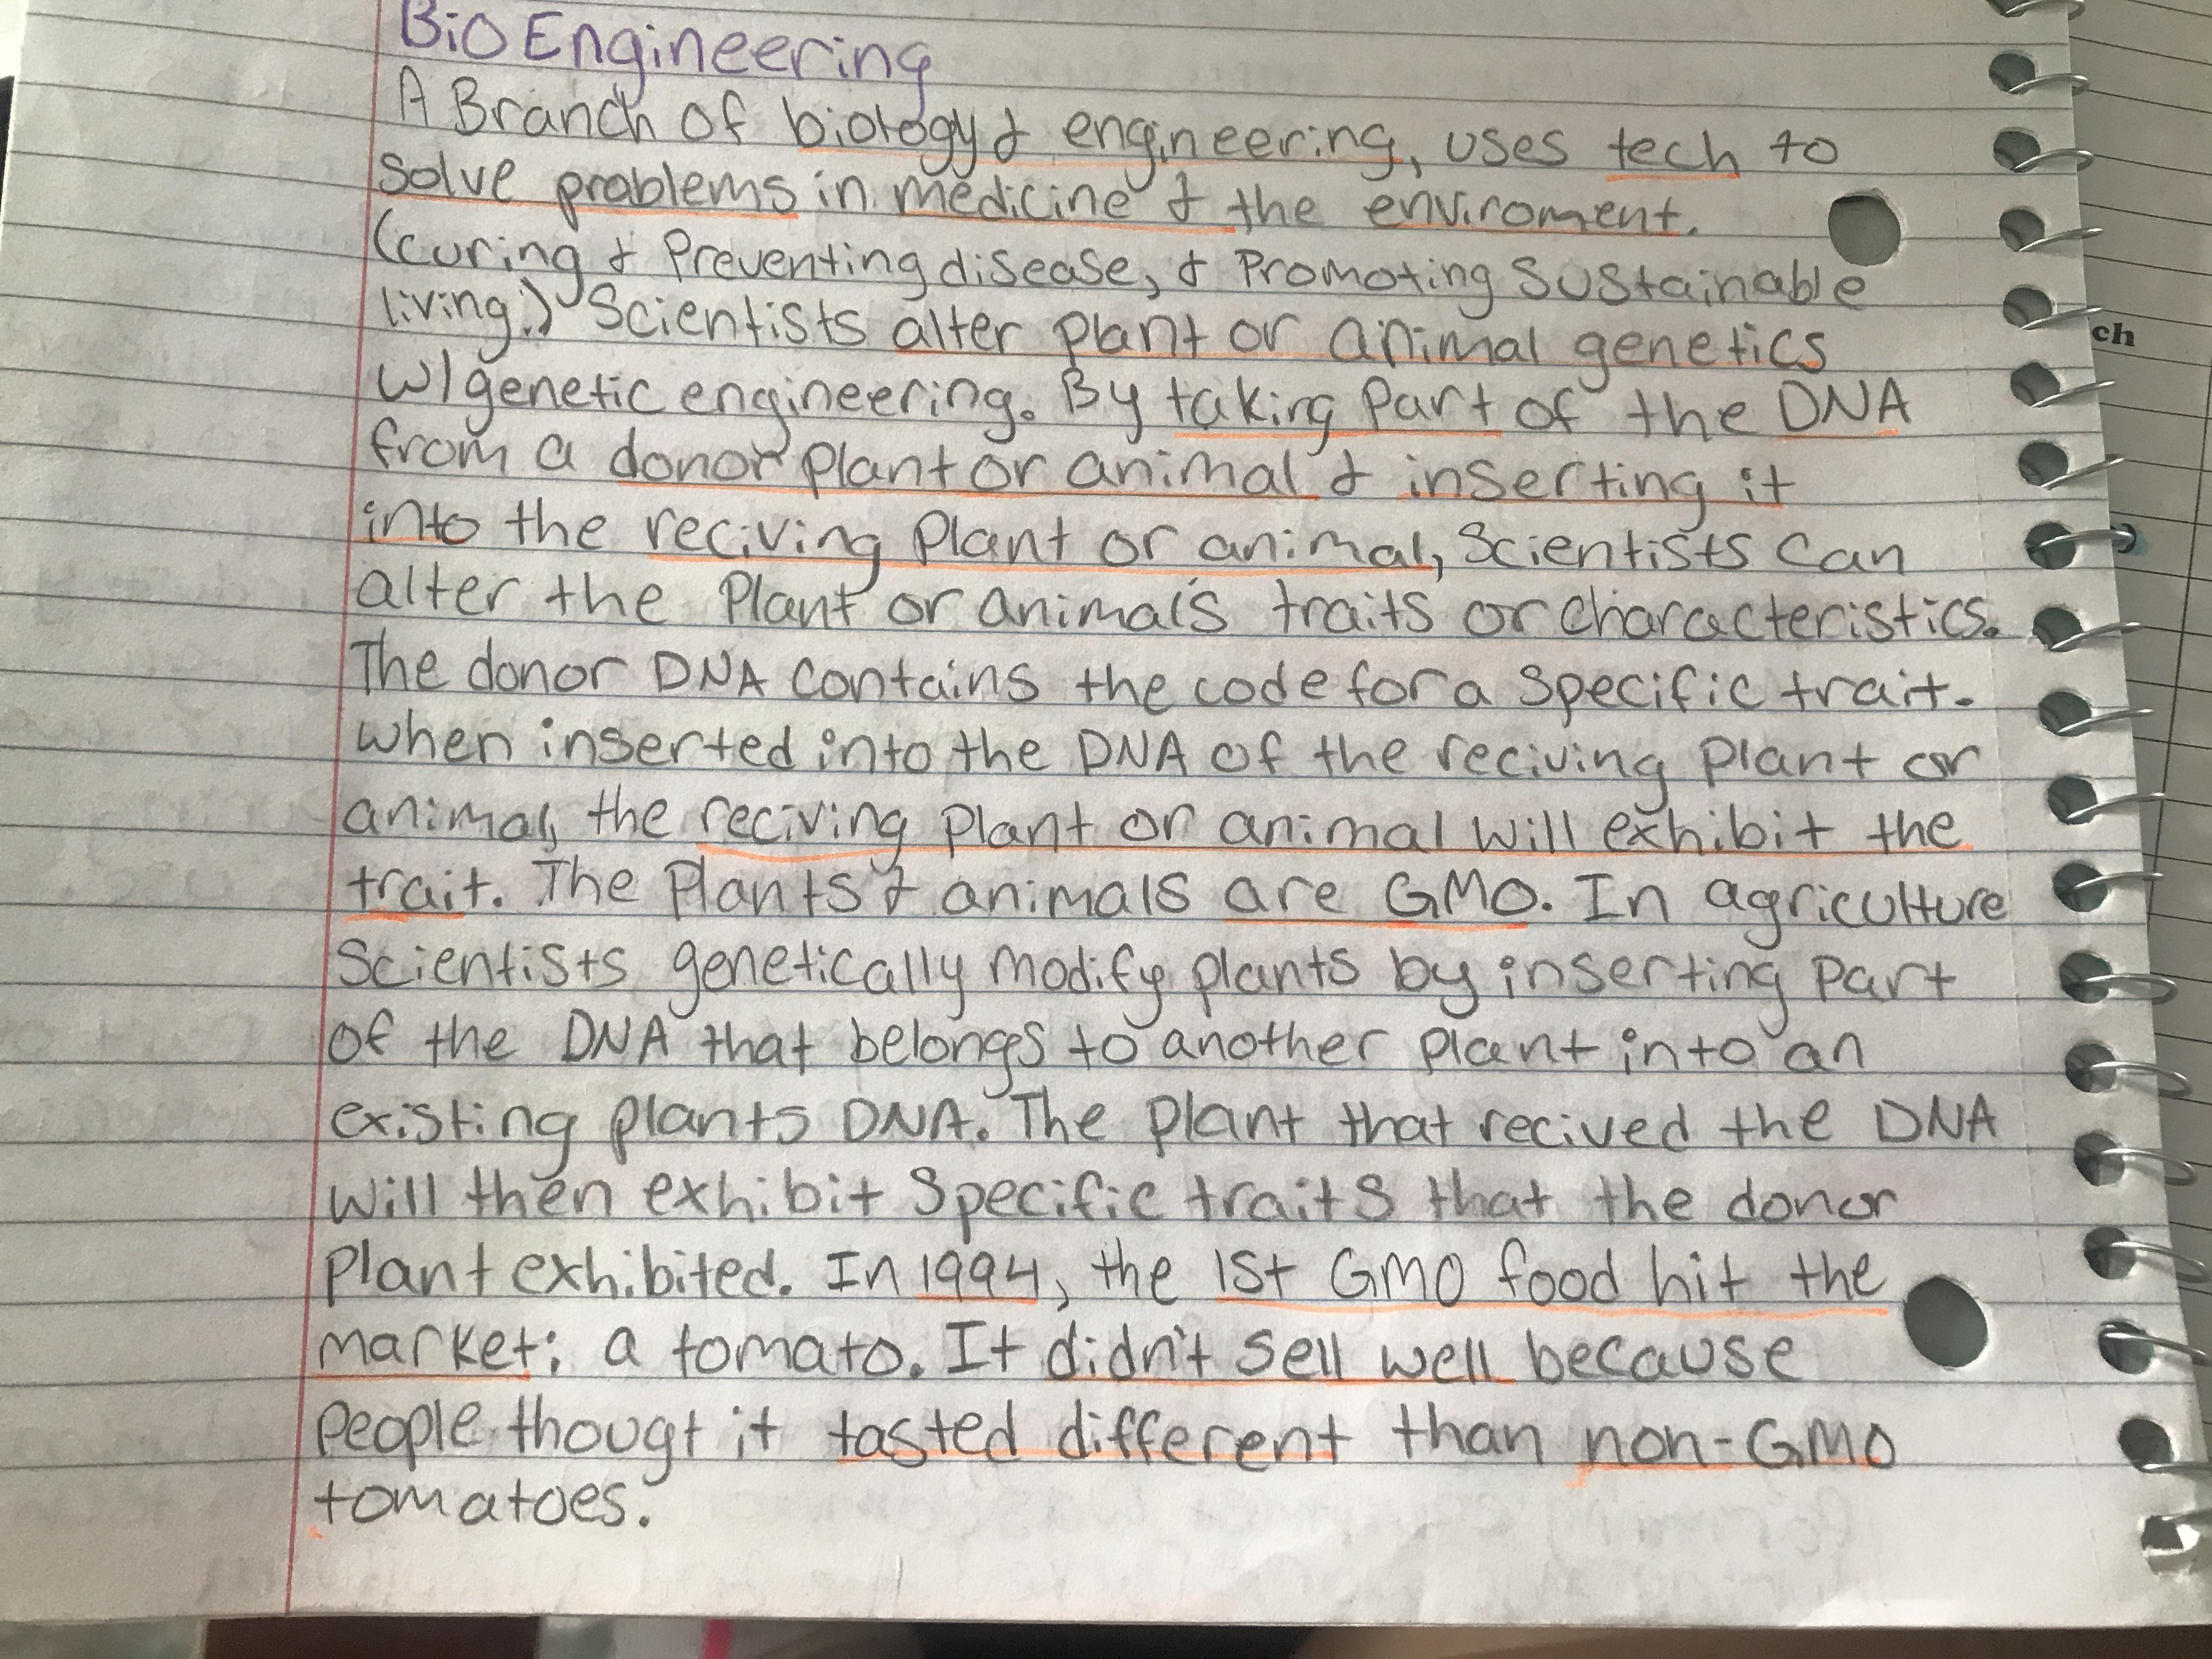 BiO Engineering
A Branch of biology & engineering, uses tech to
solve problems in medicine & the enviroment.
(curing & Preventing disease, & Promoting Sustainable
living.) Scientists alter plant or animal genetics
W/genetic engineering. By taking Part of the DNA
from a donor plant or animal & inserting it
into the reciving plant or animal, Scientists can
alter the Plant or animal's traits or characteristics.
The donor DNA contains the code for a Specific trait.
When inserted into the DNA of the reciving plant or
animal, the reciving plant or animal will exhibit the
trait. The Plants & animals are GMO. In agriculture
Scientists genetically modify plants by inserting Part
of the DNA that belongs to another plant into an
existing plants DNA. The plant that recived the DNA
will then exhibit Specific traits that the donor
Plant exhibited. In 1994, the 1st GMO food hit the
market; a tomato. It didn't sell well because
People thougt it tasted different than non-GMO
tomatoes.
ch